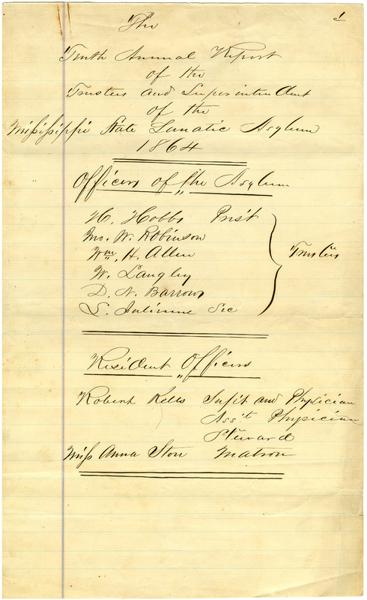 1
The
Tenth Annual Report
of the
Trustees and Superintendent
of the
Mississippi State Lunatic Asylum
1864
Officers of the Asylum
H. Hobbs Prest
Jno. W. Robinson
Wm. H. Allen
W. Langley
D. N. Barrows
S. Sec
Trustees
Resident Officers
Robert Kells Supt and Physician
Asst Physician
Steward
Miss Anna Matron